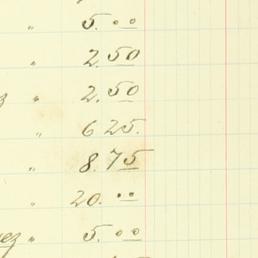 " 5.00
" 2.50
" 2.50
" 6 25.
" 8.75
" 20.00
ez " 5.00